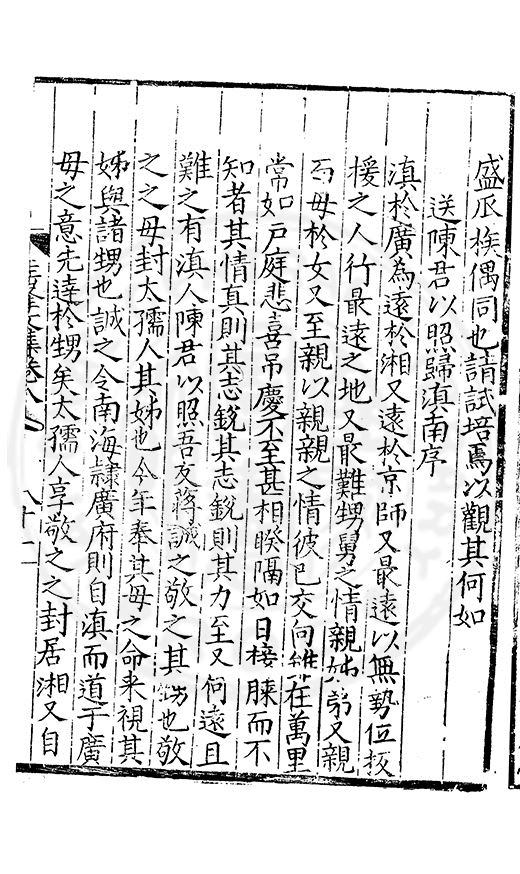 盛爪族偶同也請試培焉以觀其何如
送陳君以照歸滇南序
滇於廣為遠於湘又遠於京師又最遠以無勢位扳
援之人行最遠之地又最難甥舅之情親姊弟又親
而母於女又至親以親親之情彼已交向雖在萬里
常如戶庭悲喜吊慶不至甚相睽隔如日接膝而不
知者其情真則其志銳其志銳則其力至又何遠且
難之有滇人陳君以照吾友蔣誠之敬之其甥也敬
之之母封太孺人其姊也今年奉其母之命来視其
姊與諸甥也誠之令南海隷廣府則自滇而道于廣
母之意先達於甥矣太孺人享敬之之封居湘又自
文集卷八
八十二